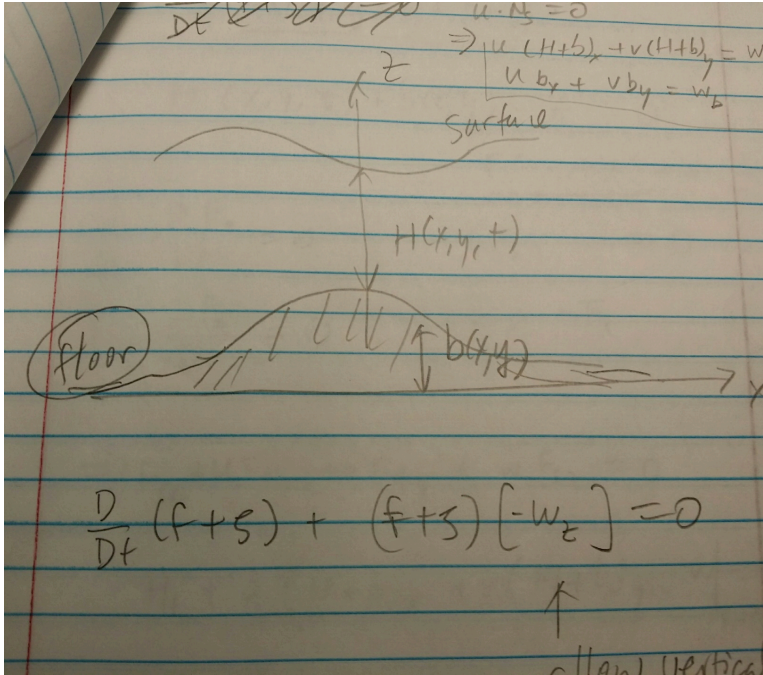 u · N_S = 0
⇒ u (H+b)_x + v(H+b)_y = w
u b_x + v b_y = w_b
z
Surface
H(x,y,t)
floor
b(x,y)
D/Dt (f+ζ) + (f+ζ) [-w_z] = 0
↑
allow vertical